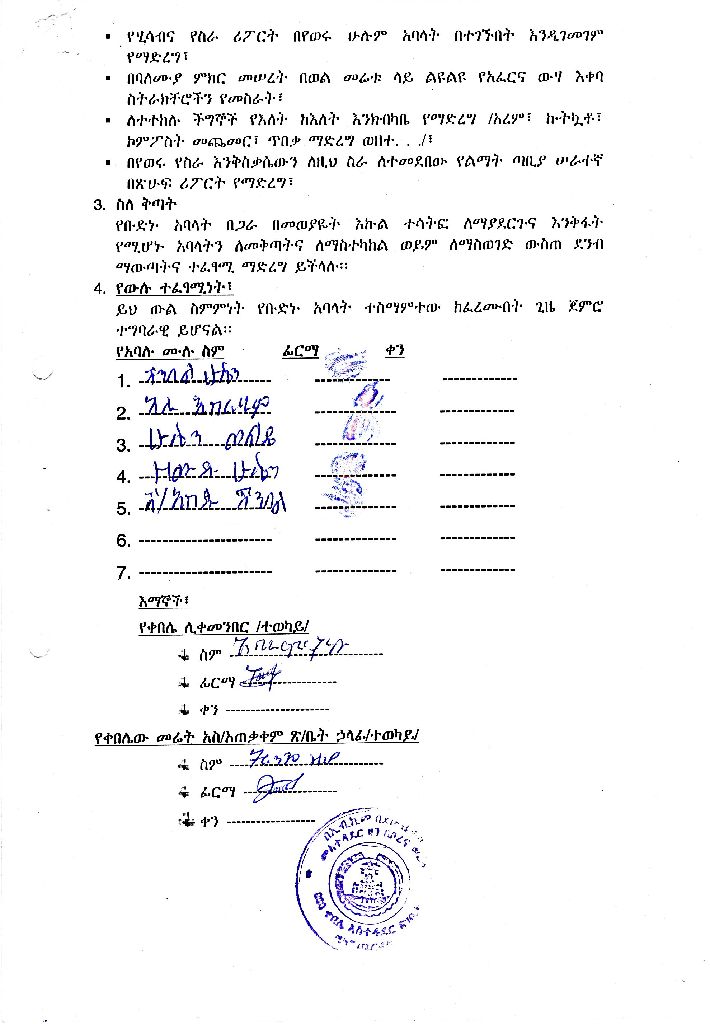 • የሂሳብና የስራ ሪፖርት በየወሩ ሁሉም አባላት በተገኙበት እንዲገመገም
የማድረግ፣
• በባለሙያ ምክር መሠረት በወል መሬቱ ላይ ልዩልዩ የአፈርና ውሃ እቀባ
ስትራክቸሮችን የመስራት፣
• ለተተከሉ ችግኞች የእለት ከእለት እንክብካቤ የማድረግ /አረም፣ ኩትኳቶ፣
ኮምፖስት መጨመር፣ ጥበቃ ማድረግ ወዘተ. . ./፣
• በየወሩ የስራ እንቅስቃሴውን ለዚህ ስራ ለተመደበው የልማት ጣቢያ ሠራተኛ
በጽሁፍ ሪፖርት የማድረግ፣
3. ስለ ቅጣት
የቡድኑ አባላት በጋራ በመወያየት እኩል ተሳትፎ ለማያደርጉና እንቅፋት
የሚሆኑ አባላትን ለመቅጣትና ለማስተካከል ወይም ለማስወገድ ውስጠ ደንብ
ማውጣትና ተፈፃሚ ማድረግ ይችላሉ።
4. የውሉ ተፈፃሚነት፣
ይህ ውል ስምምነት የቡድኑ አባላት ተስማምተው ከፈረሙበት ጊዜ ጀምሮ
ተግባራዊ ይሆናል።
የአባሉ ሙሉ ስም ፊርማ ቀን
1. ሁሴን
2. አሊ
3. ሁሴን
4. ሁሴን
5.
6.
7.
እማኞች፣
የቀበሌ ሊቀመንበር /ተወካይ/
ስም
ፊርማ
ቀን
የቀበሌው መሬት አስ/አጠቃቀም ጽ/ቤት ኃላፊ/ተወካይ/
ስም
ፊርማ
ቀን